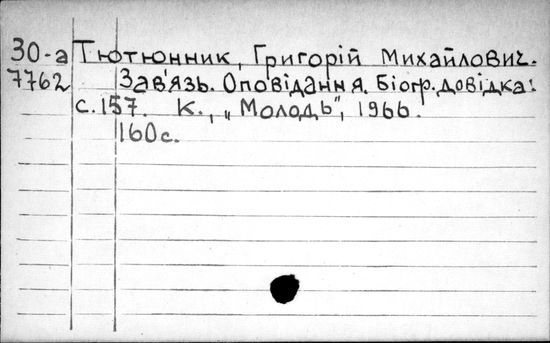 30-а Тютюнник, Григорій Михайлович.
7762 Зав'язь. Оповідання. Біогр. довідка:
с. 157. К., „Молодь", 1966.
160с.